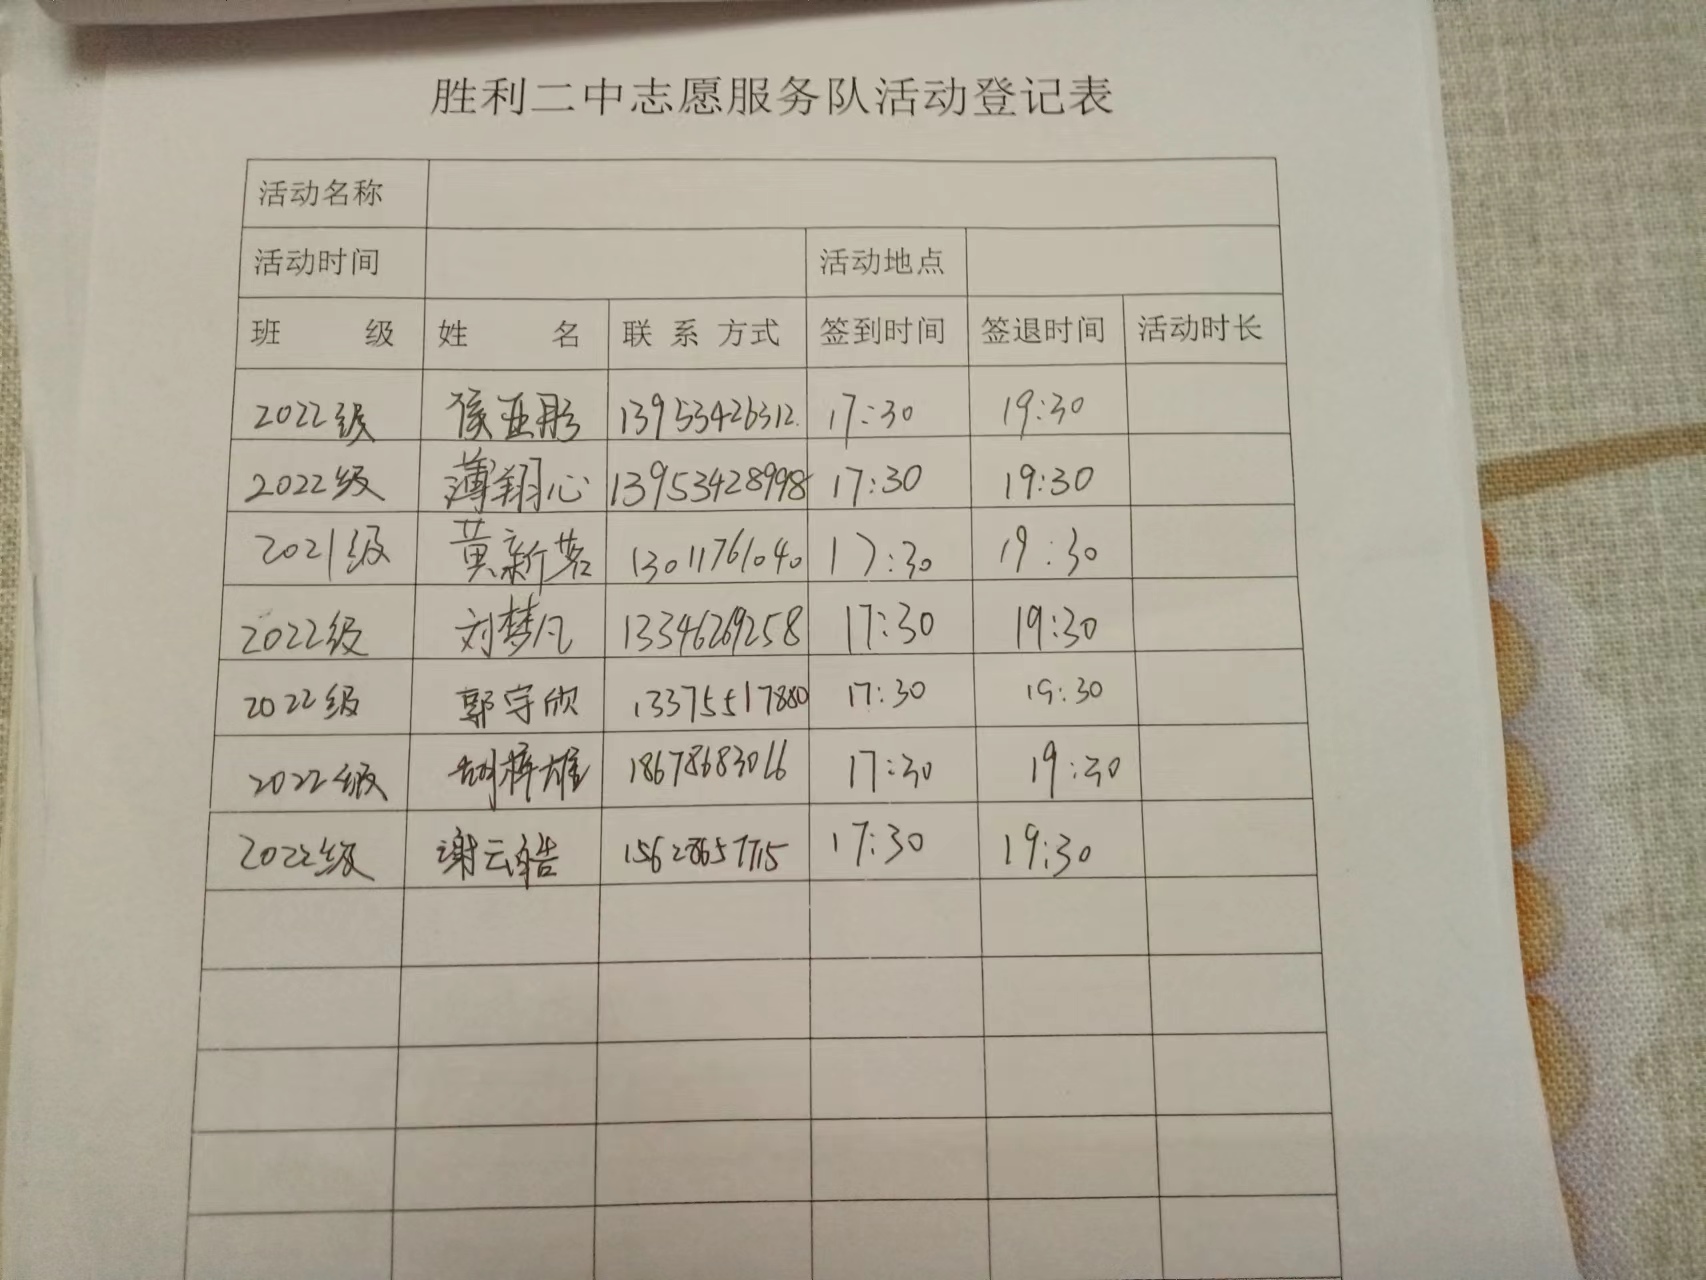 胜利二中志愿服务队活动登记表
活动名称
活动时间 活动地点
班 级 姓 名 联 系 方式 签到时间 签退时间 活动时长
2022级 侯亚彤 13953426312. 17:30 19:30
2022级 薄翔心 13953428998 17:30 19:30
2021级 黄新茗 13011761040 17:30 19:30
2022级 刘梦凡 13346269258 17:30 19:30
2022级 郭宇欣 13375517880 17:30 19:30
2022级 胡梓雄 18678683066 17:30 19:30
2022级 谢云皓 15628657715 17:30 19:30